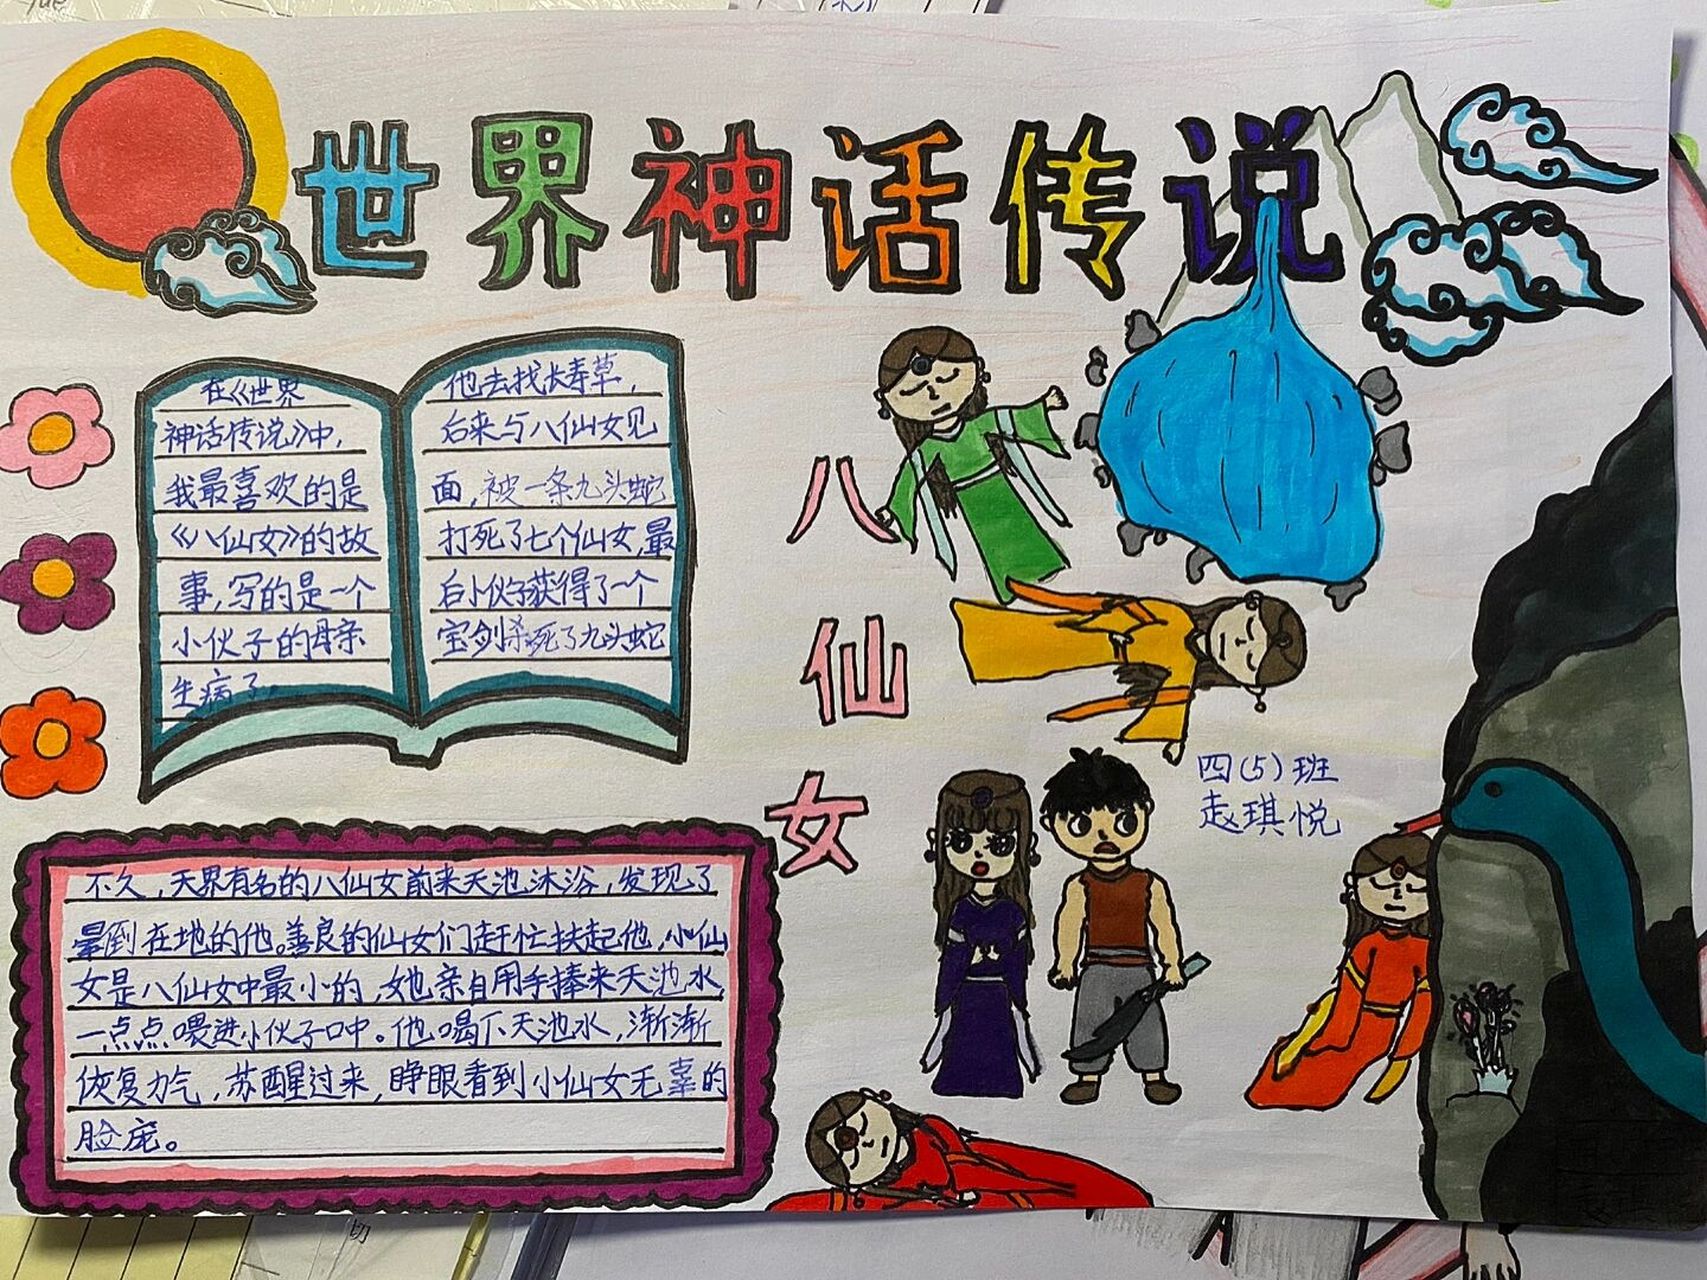 世界神话传说
在《世界
神话传说》中,
我最喜欢的是
《八仙女》的故
事,写的是一个
小伙子的母亲
生病了,
他去找长寿草,
后来与八仙女见
面,被一条九头蛇
打死了七个仙女,最
后小伙子获得了一个
宝剑杀死了九头蛇
八
仙
女
四(5)班
赵琪悦
不久,天界有名的八仙女前来天池沐浴,发现了
晕倒在地的他。善良的仙女们赶忙扶起他,小仙
女是八仙女中最小的,她亲自用手捧来天池水,
一点点喂进小伙子口中。他喝下天池水,渐渐
恢复力气,苏醒过来,睁眼看到小仙女无辜的
脸庞。